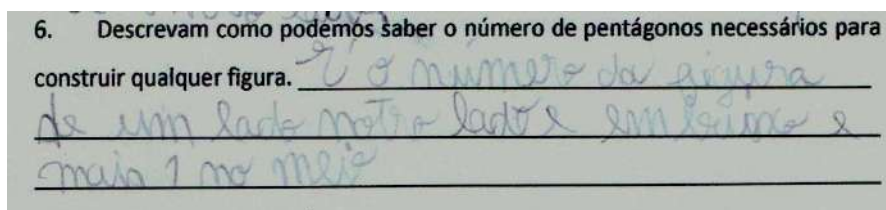 6. Descrevam como podemos saber o número de pentágonos necessários para
construir qualquer figura. É o número da figura
de um lado notro lado e em baixo e
mais 1 no meio